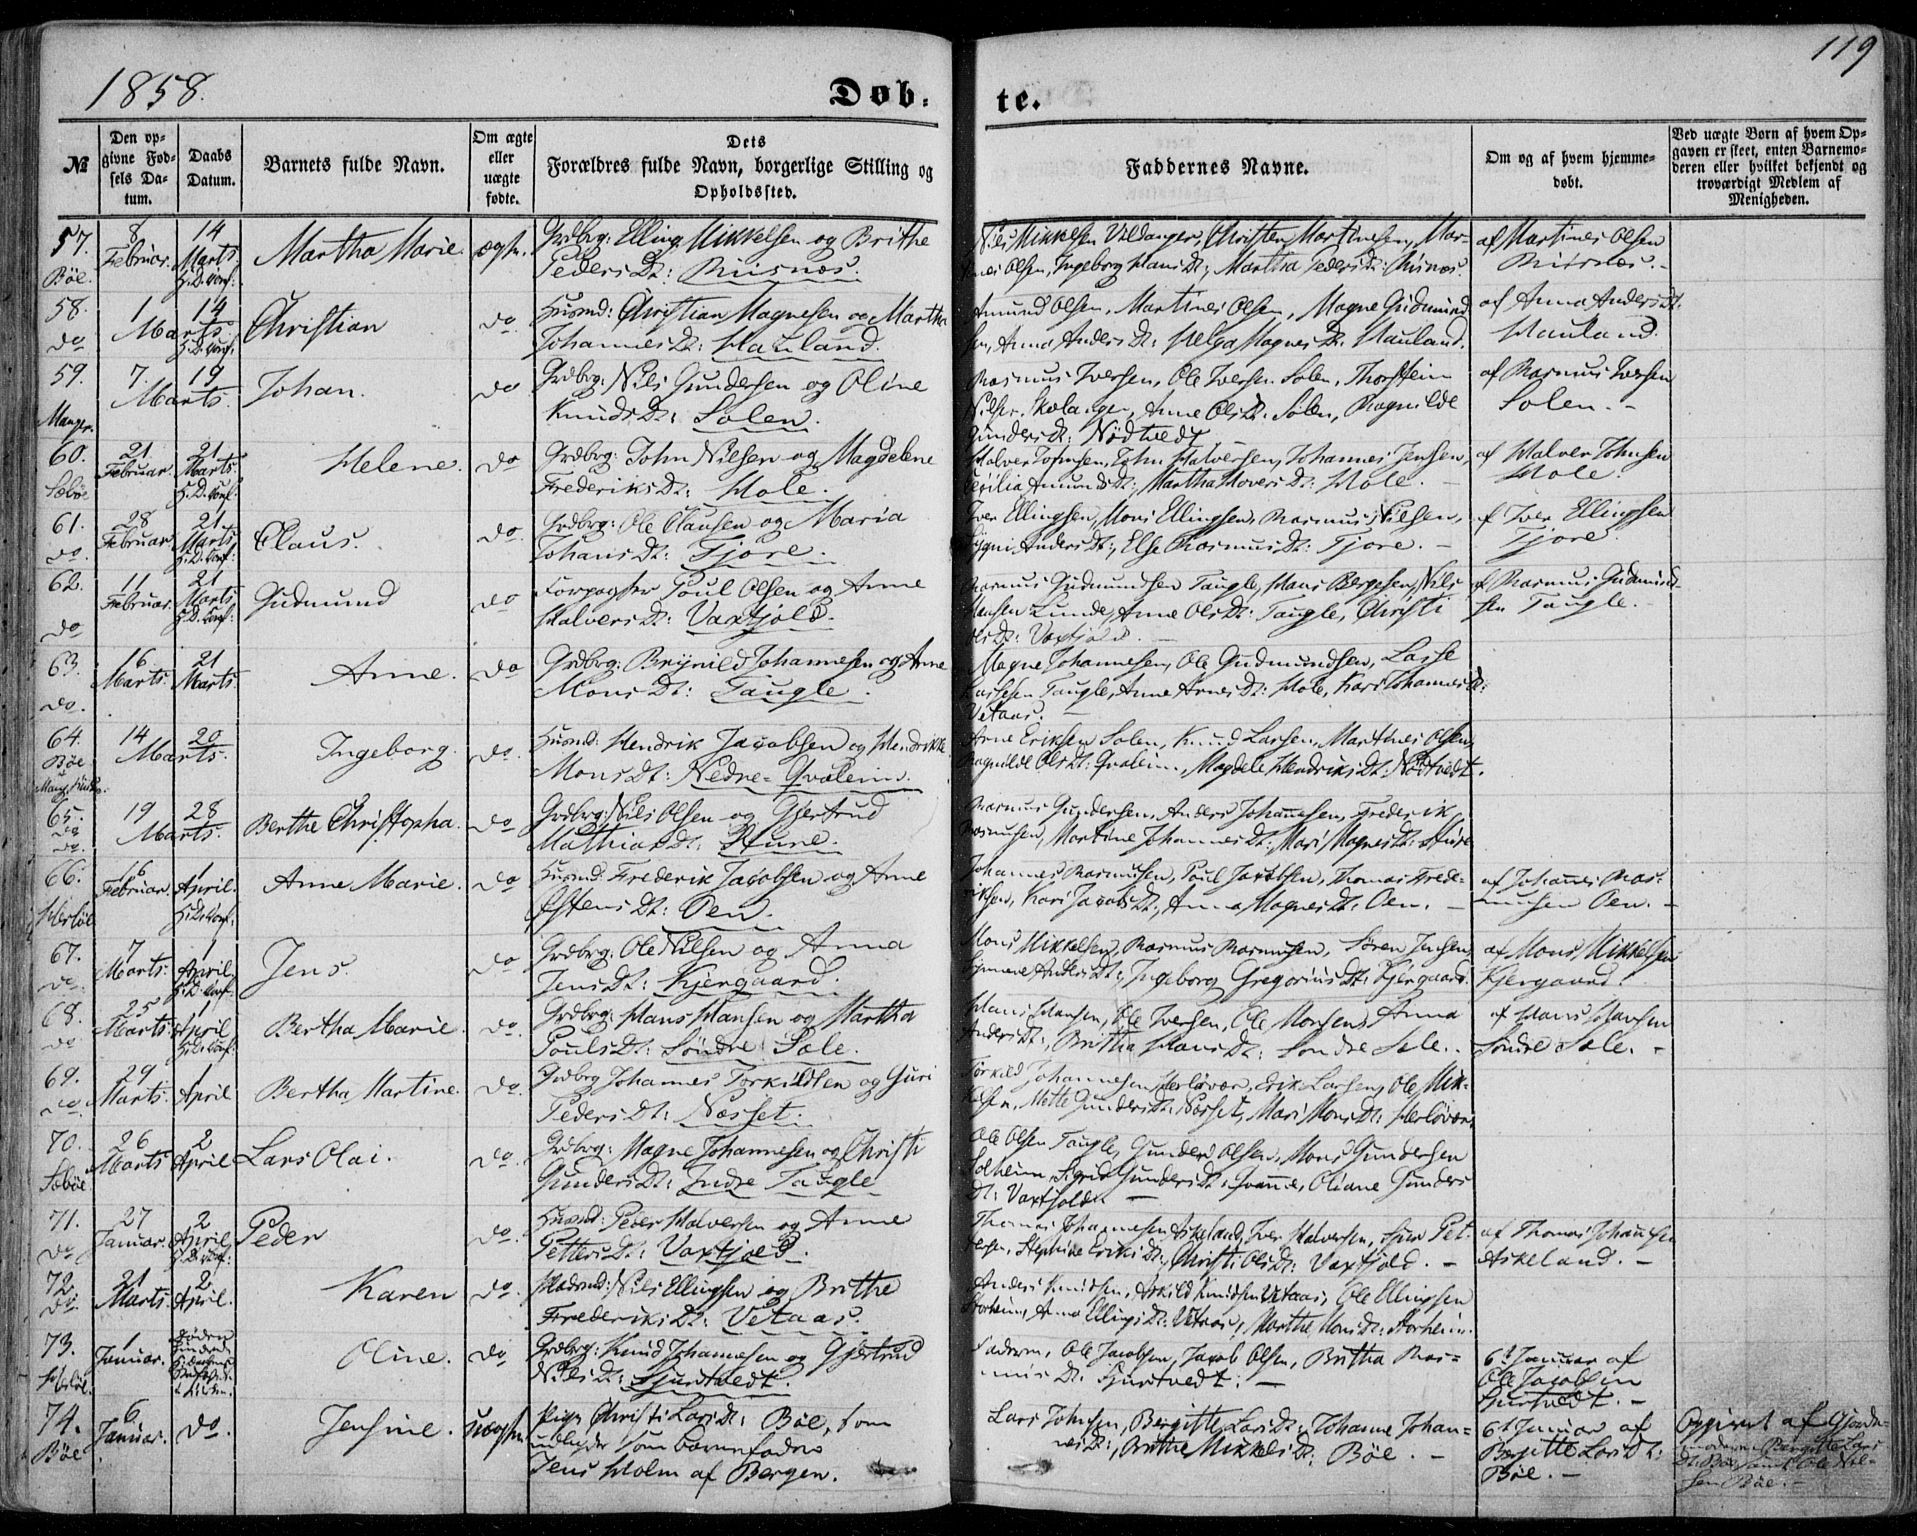 119
1858.
Døb-te.
№
Den opgivne Fødsels Datum.
Daabs Datum.
Barnets fulde Navn.
Om ægte eller uægte fødte.
Dets Forældres fulde Navn, borgerlige Stilling og Opholdssted.
Faddernes Navne.
Om og af hvem hjemmedøbt.
Ved uægte Børn af hvem Opgaven er skeet, enten Barnemoderen eller hvilket bekjendt og troværdigt Medlem af Menigheden.
57. Bøe. 8 Februar. 14 Marts. H.D. Conf: Martha Marie. ægte.
Grdbrg: Elling Mikkelsen og Brithe
Peders Dt: Risnæs.
Nils Mikkelsen Vildanger, Christen Martinesen, Mar-
tines Olsen, Ingeborg Hans Dt:, Martha Peders Dt: Risnæs.
af Martines Olsen
Risnæs.
58. do 1 14 Marts. H.D. Conf: Christian do
Husmd: Christian Magnesen og Martha
Johannes Dt: Hauland.
Amund Olsen, Martines Olsen, Magne Gudmund
sen, Anna Anders Dt: Helga Magnes Dt: Hauland.
af Anna Anders Dt:
Hauland.
59. Manger. 7. 19 Marts. Johan. do
Grdbrg: Nils Gundersen og Oline
Knuds Dt: Solen.
Rasmus Iversen, Ole Iversen Solen, Thorstein
Nilsen Skolanger, Anne Ols Dt: Solen, Ragnilde
Gunders Dt: Nødtvedt
af Rasmus Iversen
Solen. -
60. Sæbøe 21 Februar. 21 Marts. H.D. Conf: Helene. do
Grdbrg: John Nilsen og Magdelene
Frederiks Dt: Hole.
Halver Johnsen, John Halversen, Johannes Jensen,
Cecilia Amunds Dt:, Martha Halvers Dt: Hole. -
af Halver Johnsen
Hole.
61. do. 28 Februar. 21 Marts. H.D. Conf: Claus. do.
Grdbrg: Ole Clausen og Maria
Johans Dt: Fjøre.
Iver Ellingsen, Mons Ellingsen, Rasmus Nilsen,
Anders Dt:, Else Rasmus Dt: Fjøre. -
af Iver Ellingsen
Fjøre.
62. do 11 Februar. 21 Marts H.D. Conf: Gudmund do
Forpagter Poul Olsen og Anne
Halvers Dt: Vaxtjold.
Rasmus Gudmundsen Taugle, Hans Bergesen, Nils
Hansen Lunde, Anne Ols Dt: Taugle, Christi
Ols Dt: Vaxtjold. -
af Rasmus Gudmund-
sen Taugle. -
63. do. 16 Marts. 21 Marts. Anne. do
Grdbrg: Brynild Johannesen og Anne
Mons Dt: Taugle.
Magne Johannesen, Ole Gudmundsen, Lasse
Lassesen Taugle, Anne Arnes Dt: Hole, Kari Johannes Dt:
Vetaas. -
64. Bøe 14 20 Marts. Ingeborg. do.
Husmd: Hendrik Jacobsen og Hendrikke
Mons Dt: Nedre-Qvaleim.
Arne Eriksen Solen, Knud Larsen, Martines Olsen,
Ragnilde Ols Dt: Qvaleim, Magdele Hendriks Dt: Nødtvedt.
65. do. do. 19 28 Marts. Berthe Christopha. do
Grdbrg: Nils Olsen og Gjertrud
Mathias Dt:
Rasmus Gundersen, Anders Johannesen, Frederik
Rasmusen, Martine Johannes Dt:, Mari Magnes Dt:
66. Herløe 16 Februar. 1 April. H.D. Conf: Anne Marie. do
Husmd: Frederik Jacobsen og Anne
Østens Dt: Oen.
Johannes Rasmusen, Poul Jacobsen, Thomas Frede-
riksen, Kari Jacobs Dt:, Anna Magnes Dt: Oen. -
af Johannes Ras-
musen Oen. -
67. do. 7 Marts. 1 April H.D. Conf: Jens. do
Grdbrg: Ole Nilsen og Anna
Jens Dt: Kjergaard.
Mons Mikkelsen, Rasmus Rasmusen, Søren Jensen,
Anders Dt:, Ingeborg Gregorius Dt: Kjergaard.
af Mons Mikkelsen
Kjergaard.
68. do 25 Marts. April H.D. Conf: Bertha Marie. do.
Grdbrg: Hans Hansen og Martha
Pouls Dt: Søndre Sole.
Hans Hansen, Ole Iversen, Ole Monsen, Anna
Anders Dt:, Britha Hans Dt: Søndre Sole. -
af Hans Hansen
Søndre Sole. -
69. do 29 Marts. 1 April Bertha Martine. do.
Grdbrg Johannes Torkildsen og Guri
Peders Dt: Næsset.
Torkild Johannesen Herløvær, Erik Larsen, Ole Mik-
kelsen, Mette Gunders Dt: Næsset, Mari Mons Dt: Herløvær.
70. Sæbøe 26 Marts 2 April Lars Olai. do.
Grdbrg: Magne Johannesen og Christi
Gunders Dt: Indre Taugle
Ole Olsen Taugle, Gunder Olsen, Mons Gundersen
Solheim, Sigrid Gunders Dt:, Oliane Gunders
Dt: Vaxtjold. -
71. do 27 Januar. 2 April H.D. Conf: Peder do.
Husmd: Peder Halversen og Anne
Petters Dt: Vaxtjold.
Thomas Johannesen Askeland, Iver Halversen, Pet-
tersen, Stephine Eriks Dt:, Christi Ols Dt: Vaxtjold. -
af Thomas Johannsen
Askeland. -
72. do. 21 Marts. 2 April. Karen do.
Nils Ellingsen og Brithe
Frederiks Dt: Vetaas.
Anders Knudsen, Askild Knudsen Vetaas, Ole Ellingsen
Storheim, Anna Ellings Dt: Vetaas, Marthe Mons Dt: Storheim.
73. Herløe. 1 Januar. Oline. do
Grdbrg: Knud Johannesen og Gjertrud
Nils Dt: Gjertvedt.
Faderen, Ole Jacobsen, Jacob Olsen, Britha Ras-
mus Dt: Gjertvedt: -
6t Januar af
Ole Jacobsen
Gjertvedt. -
74. Bøe 6 Januar. do. Jensine. uægte
Pige Christi Lars Dt: Bøe, som
udlagde som barnefader
Jens Holm af Bergen.
Lars Johnsen, Bergitte Lars Dt:, Johanne Johan-
nes Dt:, Brithe Mikkels Dt: Bøe. -
6t Januar af
Bergitte Lars Dt:
Bøe. -
Opgivet af Gjorde-
moderen Bergitte Lars
Dt: Bøe samt Ole Nil-
sen Bøe. -